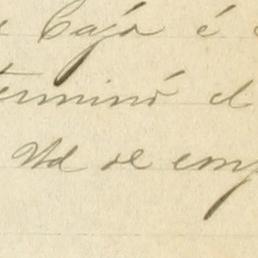 Caja é
terminó el
Vd se emp